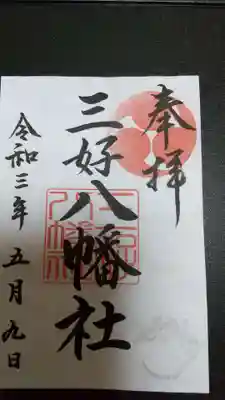 奉拝
三好八幡社
令和三年 五月九日